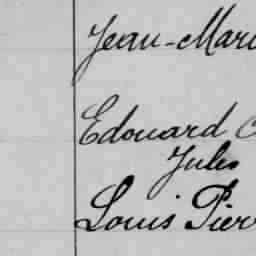 Jean-Mari
Edouard
Jules
Louis Pier